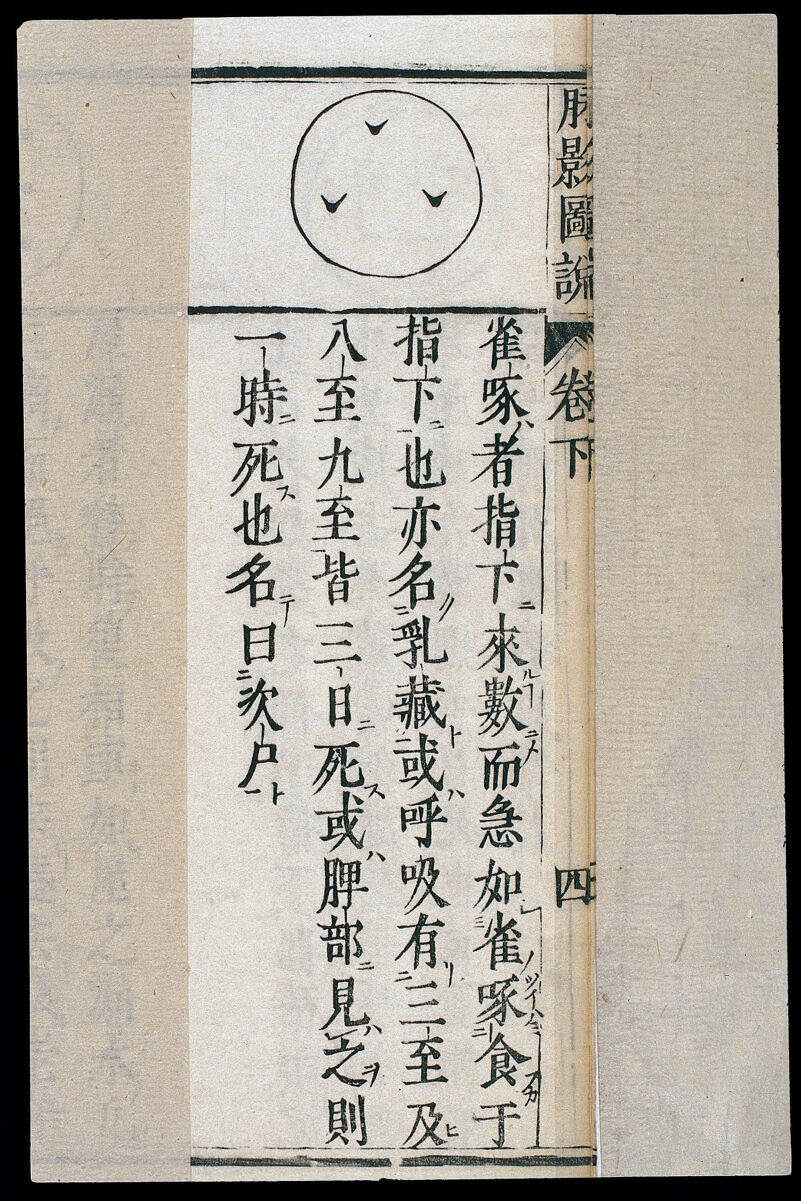 脉影圖説 卷下 四
雀啄者指下來數而急如雀啄食于
指下也亦名乳藏或呼吸有三至及
八至九至皆三日死或脾部見之則
一時死也名曰次尸